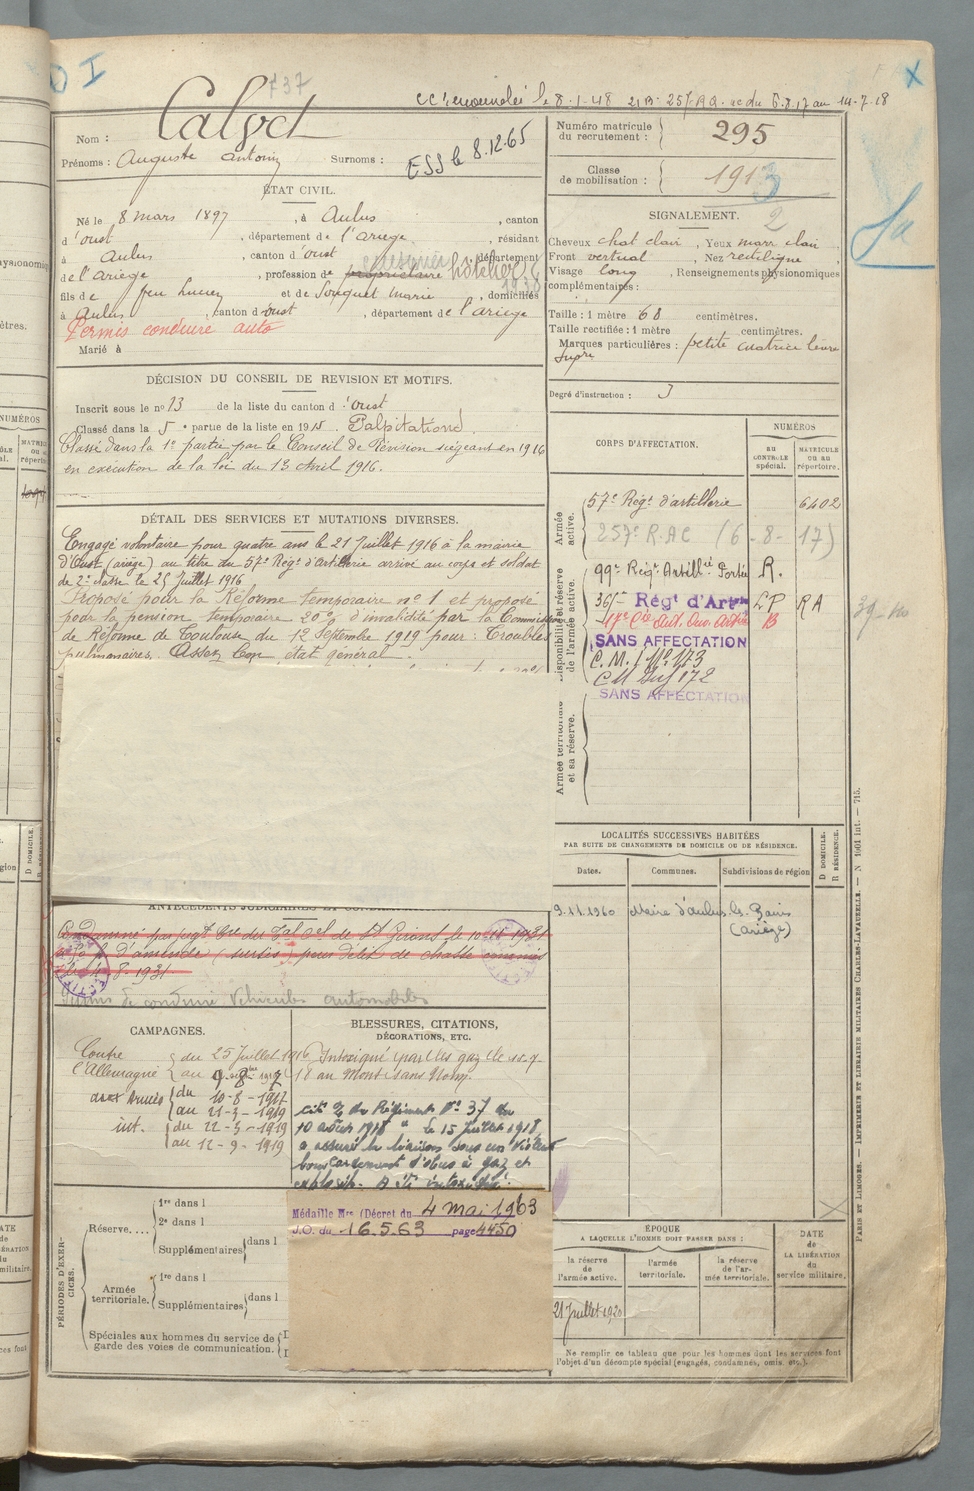 CC renouvelée le 8-1-48
Nom : Calvet
Prénoms : Auguste Antonin Surnoms :
ESS le 8.12.65
Numéro matricule du recrutement : 295
Classe de mobilisation : 1913
2
ÉTAT CIVIL.
Né le 8 mars 1897, à Aulus, canton
d'oust, département de l'ariege, résidant
à Aulus, canton d'oust, département
de l'ariege, profession de propriétaire hôtelier
1938
fils de feu Lucien et de Souquet Marie, domiciliés
à Aulus, canton d'oust, département de l'ariege
Permis conduire auto
Marié à
SIGNALEMENT.
Cheveux chat clair, Yeux marr clair
Front vertical, Nez rectiligne
Visage long, Renseignements physionomiques
complémentaires :
Taille : 1 mètre 68 centimètres.
Taille rectifiée : 1 mètre centimètres.
Marques particulières : petite cicatrice lèvre
supre
Degré d'instruction : 3
DÉCISION DU CONSEIL DE REVISION ET MOTIFS.
Inscrit sous le no 13 de la liste du canton d'Oust
Classé dans la 5e partie de la liste en 1915. Palpitations
Classé dans la 1e partie par le Conseil de Révision siégeant en 1916
en exécution de la loi du 13 Avril 1916.
DÉTAIL DES SERVICES ET MUTATIONS DIVERSES.
Engagé volontaire pour quatre ans le 21 Juillet 1916 à la mairie
d'Oust (ariège) au titre du 57e Régt d'Artillerie arrivé au corps et soldat
de 2e classe le 25 Juillet 1916
Proposé pour la Réforme temporaire no 1 et proposé
pour la pension temporaire 20% d'invalidité par la Commission
de Réforme de Toulouse du 12 Septembre 1919 pour : Troubles
pulmonaires. Assez bon état général.
CORPS D'AFFECTATION.
NUMÉROS
AU CONTROLE spécial.
MATRICULE OU AU répertoire.
Armée active.
57e Régt d'artillerie 6402
257e R.A.C (6-8-17)
Disponibilité et réserve de l'armée active.
99e Régt Artillie Portée R.
36e Régt d'Artie LP RA
SANS AFFECTATION
C.M. 173
SANS AFFECTATION
Armée territoriale et sa réserve.
LOCALITÉS SUCCESSIVES HABITÉES
PAR SUITE DE CHANGEMENTS DE DOMICILE OU DE RÉSIDENCE.
Dates. Communes. Subdivisions de région
D DOMICILE. R RÉSIDENCE.
9.11.1960 Mairie d'aulus les Bains
(Ariège)
Condamné par jugt Cre du Tal Cel de St Girons le
d'amende (sursis) pour délit de chasse commis
1931
Permis de conduire Véhicules automobiles
CAMPAGNES.
Contre l'Allemagne { du 25 Juillet 1916
au 9 8bre 1917
aux Armées { du 10-8-1917
au 21-3-1919
int. { du 22-3-1919
au 12-9-1919
BLESSURES, CITATIONS,
DÉCORATIONS, ETC.
Intoxiqué par les gaz le 15-7-
18 au Mont sans Nom.
cité à du Régiment No 37 du
10 août 1918 " le 15 Juillet 1918,
a assuré la liaison sous un violent
bombardement d'obus à gaz et
explosifs. A été intoxiqué.
Médaille Mre (Décret du 4 mai 1963
J.O. du 16.5.63 page 4450
PÉRIODES D'EXERCICES.
Réserve....
1re dans l
2e dans l
Supplémentaires dans l
Armée territoriale.
1re dans l
Supplémentaires dans l
Spéciales aux hommes du service de
garde des voies de communication.
ÉPOQUE
A LAQUELLE L'HOMME DOIT PASSER DANS :
la réserve de l'armée active.
l'armée territoriale.
la réserve de l'armée territoriale.
DATE de LA LIBÉRATION du service militaire.
21 Juillet 1920
Ne remplir ce tableau que pour les hommes dont les services font
l'objet d'un décompte spécial (engagés, condamnés, omis, etc.).
PARIS ET LIMOGES. — IMPRIMERIE ET LIBRAIRIE MILITAIRES CHARLES-LAVAUZELLE. — N 1901 int. — 715.